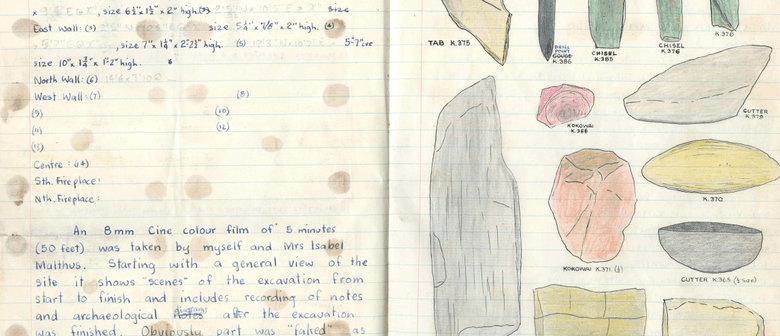 size 6½" x 1½" x 2" high.
size
East Wall: (3)
size 5¼" x ⅞" x 2" high. (4)
size 7" x 1¼" x 2-2½" high. (5)
size 10" x 1¾" x 1"-2" high.
North Wall: (6)
West Wall: (7) (8)
(9) (10)
(11) (12)
(13)
Centre: (14)
Sth. Fireplace:
Nth. Fireplace:
An 8mm Cine colour film of 5 minutes
(50 feet) was taken by myself and Mrs Isabel
Malthus. Starting with a general view of the
site it shows "scenes" of the excavation from
start to finish and includes recording of notes
diagrams
and archaeological notes after the excavation
was finished. Obviously part was "faked" as
TAB K.375
DRILL POINT
GOUGE
K.386
CHISEL
K.385
CHISEL
K.376
K.378
KOKOWAI
K.368
CUTTER
K.379
K.370
KOKOWAI K.371 (½)
CUTTER K.365 (½ size)